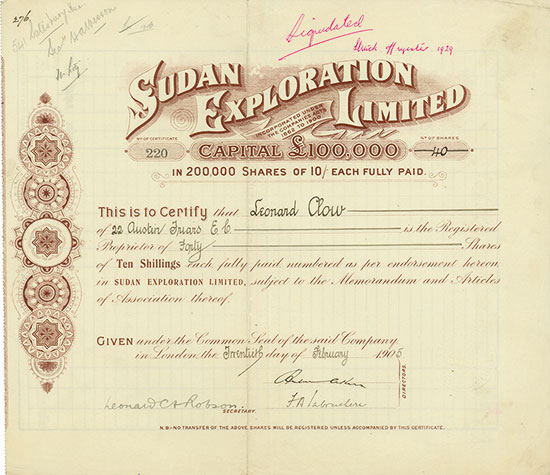 276.
Liquidated
1929
SUDAN
EXPLORATION
LIMITED
INCORPORATED UNDER
THE COMPANIES ACTS
1862 TO 1900
No OF CERTIFICATE
No OF SHARES
220
CAPITAL £100,000
40
IN 200,000 SHARES OF 10/- EACH FULLY PAID.
This is to Certify that Leonard Clow
of 22 Austin Friars E.C is the Registered
Proprietor of Forty Shares
of Ten Shillings each, fully paid, numbered as per endorsement hereon,
in SUDAN EXPLORATION LIMITED, subject to the Memorandum and Articles
of Association thereof.
GIVEN under the Common Seal of the said Company
in London the Twentieth day of February 1905
Leonard C H Robson.
SECRETARY.
DIRECTORS.
N.B:-NO TRANSFER OF THE ABOVE SHARES WILL BE REGISTERED UNLESS ACCOMPANIED BY THIS CERTIFICATE.